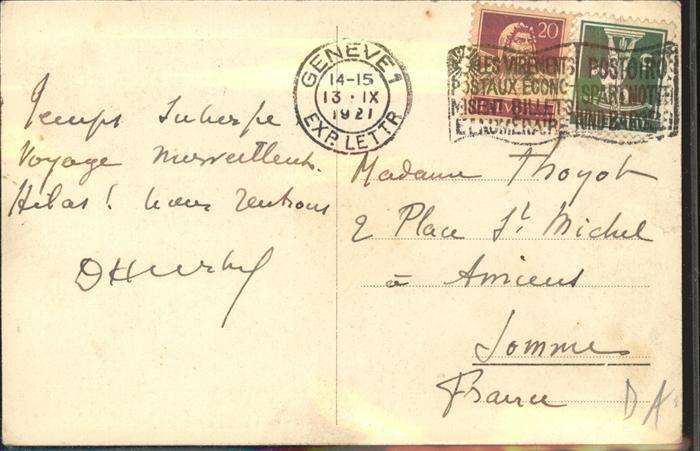 Temps Superbe
Voyage merveilleux.
Hélas! nous rentrons
GENÈVE 1
14-15
13 · IX
1921
EXP. LETTR
20
LES VIREMENTS
POSTAUX ECONO
MISENT BILLETS
ET NUMERAIRE
Madame Thoyot
2 Place St Michel
à Amiens
Somme
France
DA